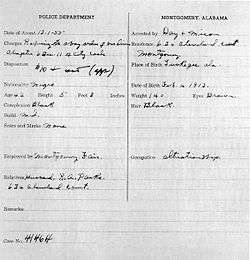 POLICE DEPARTMENT
MONTGOMERY, ALABAMA
Date of Arrest 12-1-55
Arrested by Day & Mixon
Charges Refusing to obey orders of bus driver
Residence 634 Cleveland Court
Chapter 6 Sec 11 City code
Montgomery
Disposition $10 & cost (app)
Place of Birth Tuskegee Ala
Nationality Negro
Date of Birth Feb 4 1913
Age 42 Height 5' Feet 3 Inches
Weight 140 Eyes Brown
Complexion Black
Hair Black
Build Med.
Scars and Marks None
Employed by Montgomery Fair
Occupation
Relatives Husband R.A. Parks
634 Cleveland Court
Remarks:
Case No.